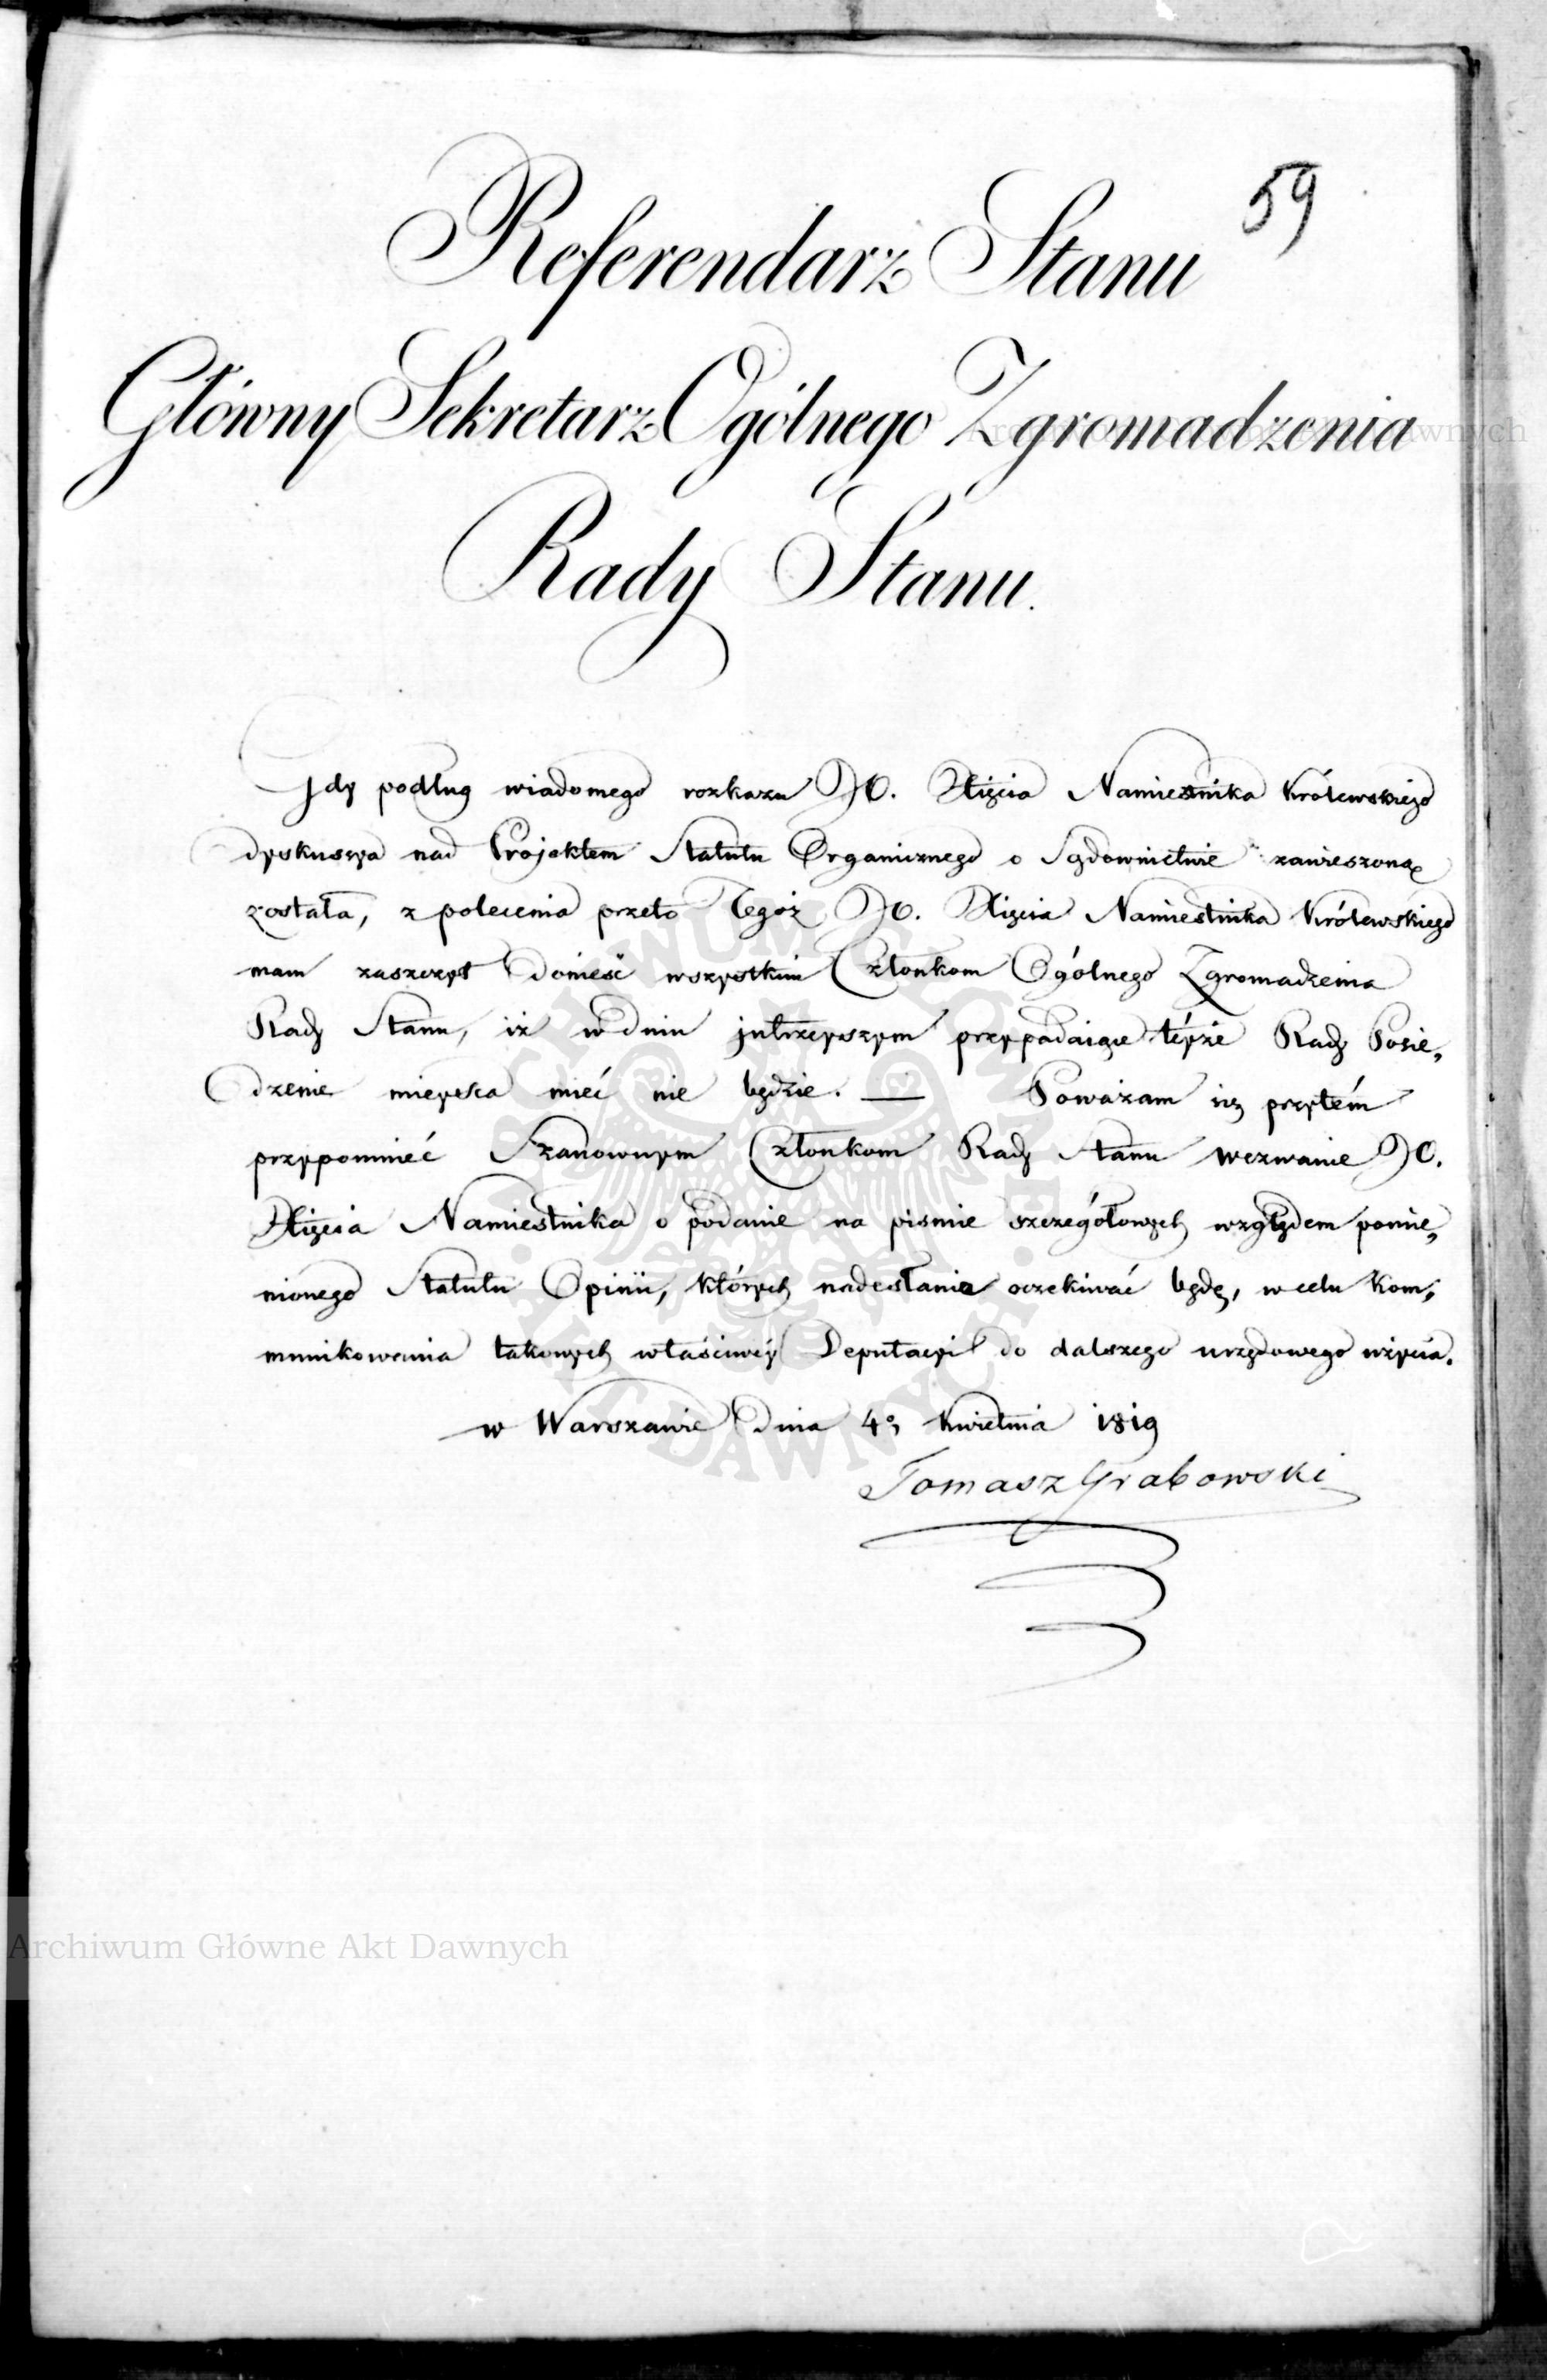 59
Referendarz Stanu
Główny Sekretarz Ogólnego Zgromadzenia
Rady Stanu.
Gdy podług wiadomego rozkazu JO. Xięcia Namiestnika Królewskiego
dyskussya nad Projektem Statutu Organicznego o Sądownictwie zawieszoną
została, z polecenia przeto Tegoż JO. Xięcia Namiestnika Królewskiego
mam zaszczyt donieść wszystkim Członkom Ogólnego Zgromadzenia
Rady Stanu, iż w dniu jutrzeyszym przypadaiące téyże Rady Posie„
dzenie mieysca mieć nie będzie. — Poważam się przytém
przypomnieć Szanownym Członkom Rady Stanu wezwanie JO.
Xięcia Namiestnika o podanie na pismie szczegółowych względem pomie„
nionego Statutu Opinii, których nadesłania oczekiwać będę, w celu kom„
munikowania takowych właściwéy Deputacyi do dalszego urzędowego użycia.
w Warszawie dnia 4º, Kwietnia 1819
Tomasz Grabowski
Archiwum Główne Akt Dawnych